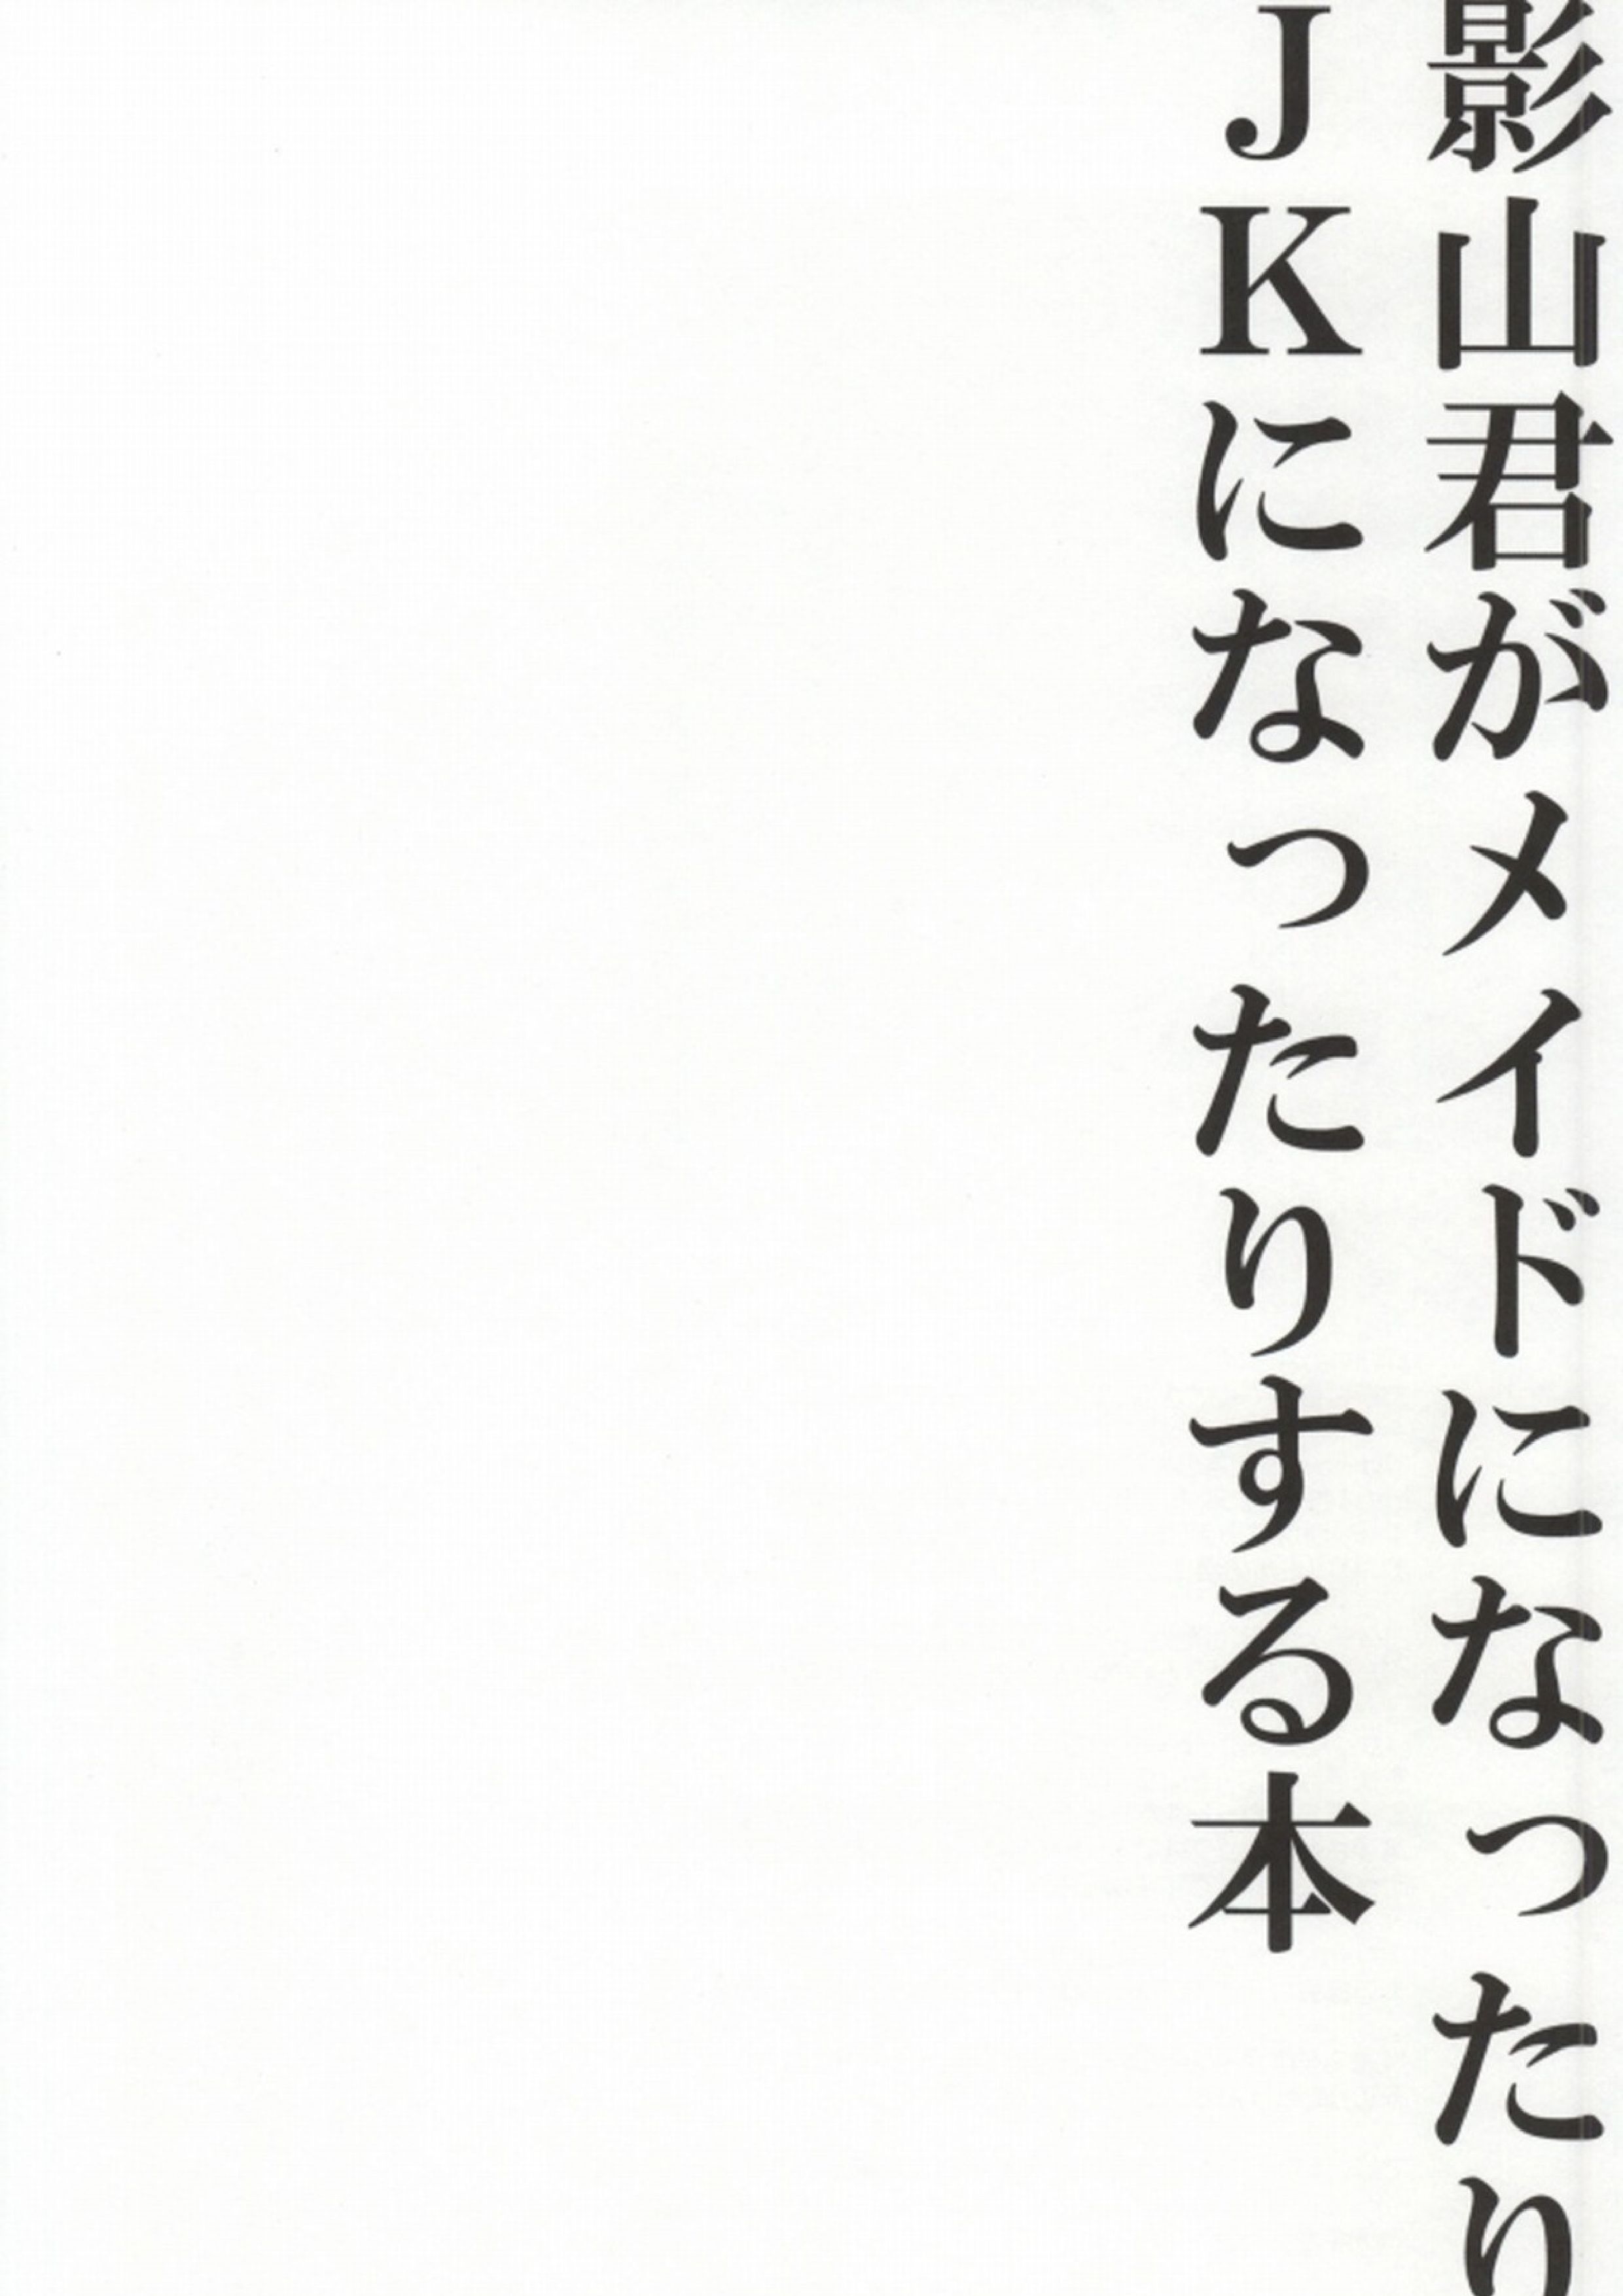 影山君がメイドになったり
JKになったりする本